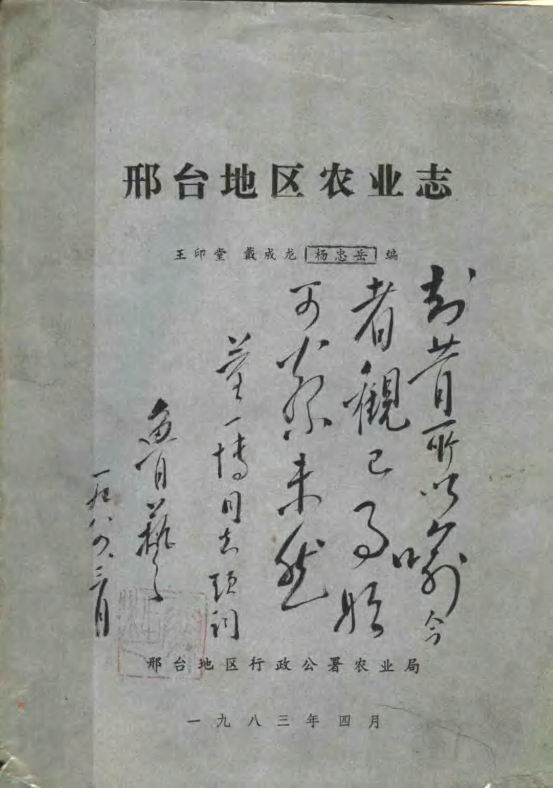 邢台地区农业志
王印堂 戴成龙 杨忠岳 编
昔所以喻今
者觀已事始
可以察未然
董一博同志题词
一九八四、三月
邢台地区行政公署农业局
一九八三年四月